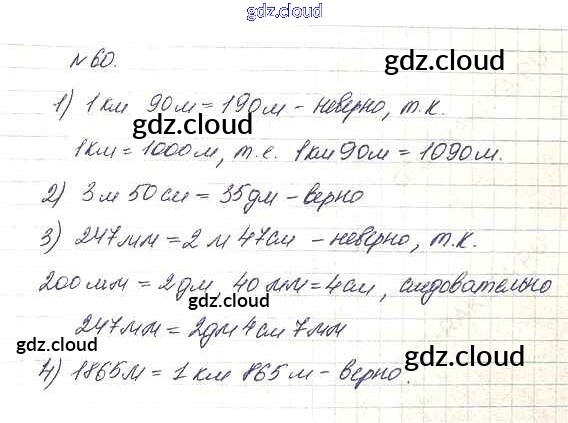 gdz.cloud
gdz.cloud
№60.
1) 1км 90м = 190м - неверно, т.к.
gdz.cloud
1км = 1000м, т.е. 1км 90м = 1090м.
2) 3м 50см = 35дм - верно
3) 247мм = 2м 47см - неверно, т.к.
200мм = 2дм, 40мм = 4см, следовательно
gdz.cloud
247мм = 2дм 4см 7мм
gdz.cloud gdz.cloud
4) 1865м = 1км 865м - верно.